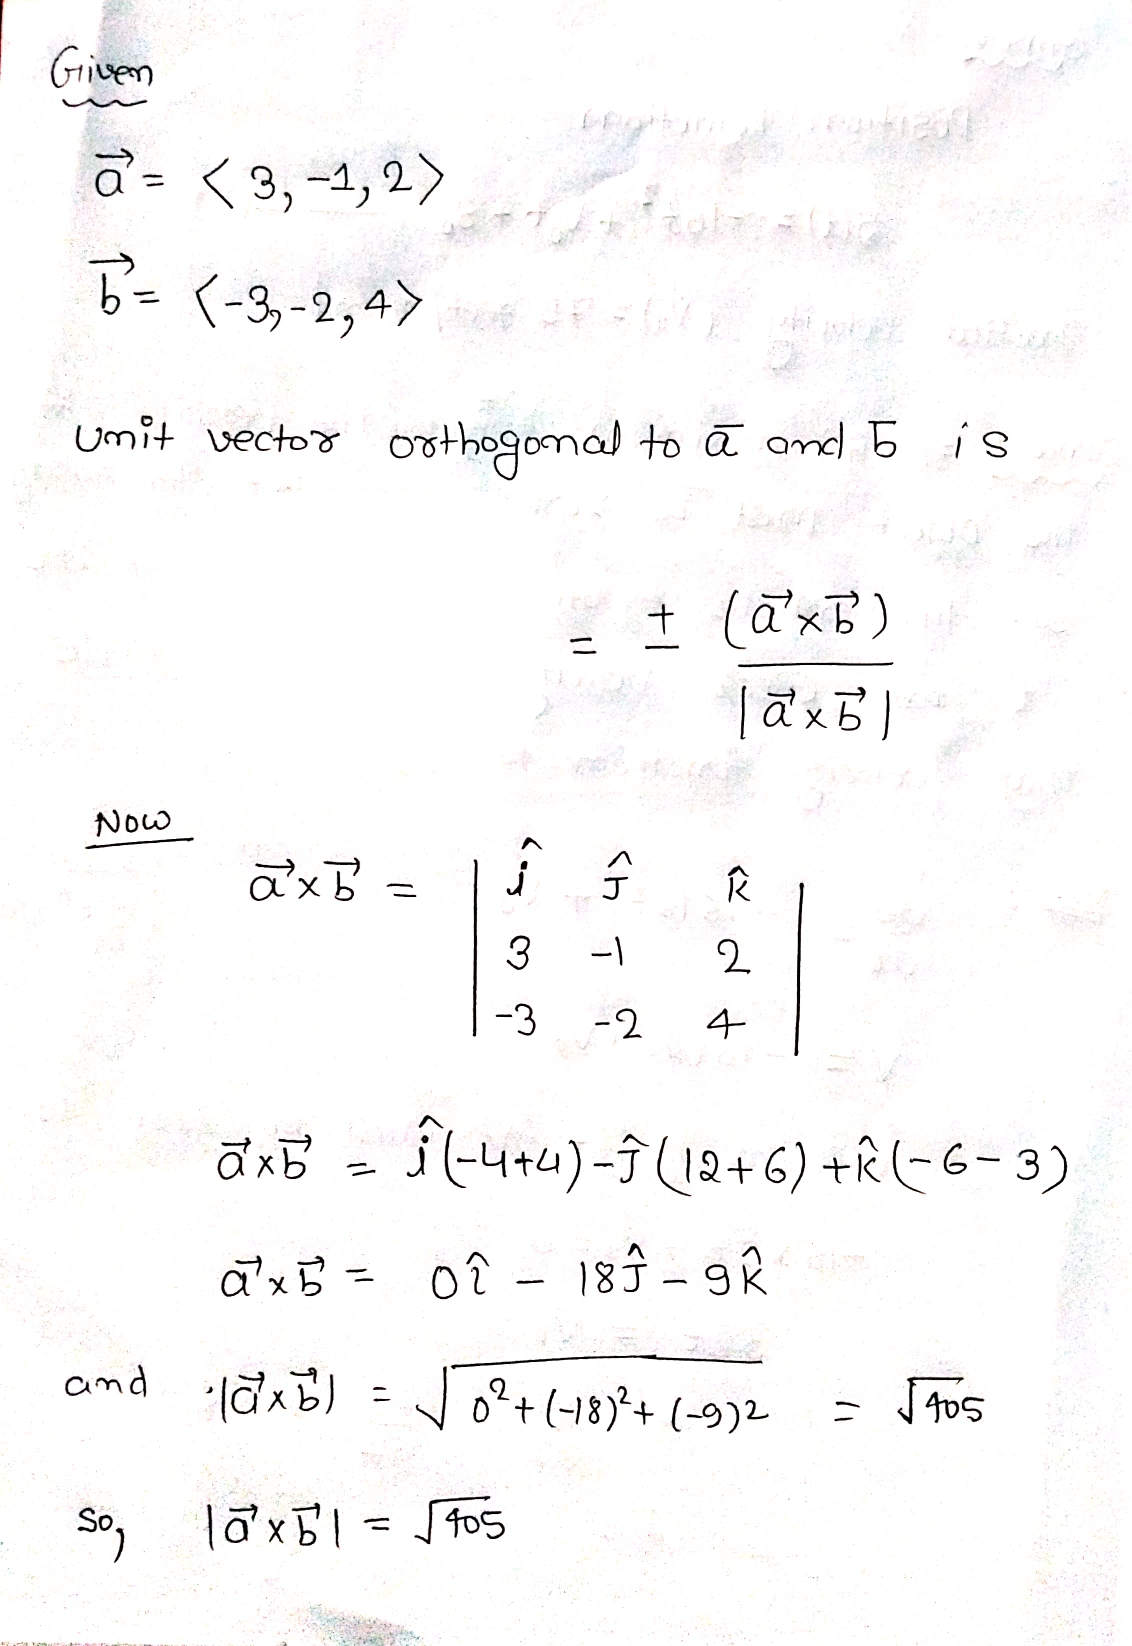 Given
a⃗ = < 3, -1, 2>
b⃗ = <-3, -2, 4>
Unit vector orthogonal to a̅ and b̅ is
= ± (a⃗ x b⃗)
|a⃗ x b⃗|
Now
a⃗ x b⃗ = | î ĵ k̂ |
3 -1 2
-3 -2 4
a⃗ x b⃗ = î(-4+4) - ĵ(12+6) + k̂(-6-3)
a⃗ x b⃗ = 0î - 18ĵ - 9k̂
and |a⃗ x b⃗| = √0²+(-18)²+(-9)2 = √405
so, |a⃗ x b⃗| = √405